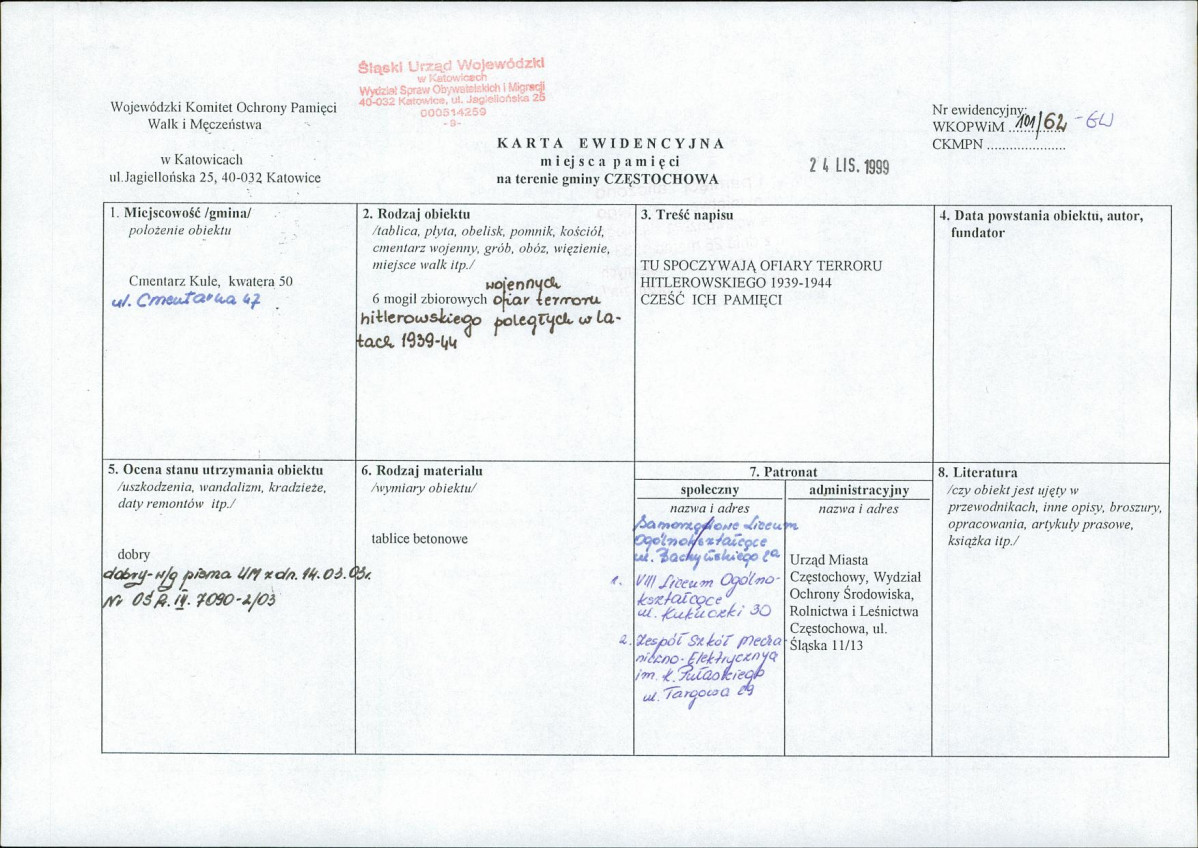 Śląski Urząd Wojewódzki
w Katowicach
Wydział Spraw Obywatelskich i Migracji
40-032 Katowice, ul. Jagiellońska 25
000514259
-8-
Wojewódzki Komitet Ochrony Pamięci
Walk i Męczeństwa
w Katowicach
ul.Jagiellońska 25, 40-032 Katowice
KARTA EWIDENCYJNA
miejsca pamięci
na terenie gminy CZĘSTOCHOWA
24 LIS. 1999
Nr ewidencyjny:
WKOPWiM 101/62 -GW
CKMPN ......................
1. Miejscowość /gmina/
położenie obiektu
Cmentarz Kule, kwatera 50
ul. Cmentarna 47
2. Rodzaj obiektu
/tablica, płyta, obelisk, pomnik, kościół,
cmentarz wojenny, grób, obóz, więzienie,
miejsce walk itp./
wojennych
6 mogił zbiorowych ofiar terroru
hitlerowskiego poległych w la-
tach 1939-44
3. Treść napisu
TU SPOCZYWAJĄ OFIARY TERRORU
HITLEROWSKIEGO 1939-1944
CZEŚĆ ICH PAMIĘCI
4. Data powstania obiektu, autor,
fundator
5. Ocena stanu utrzymania obiektu
/uszkodzenia, wandalizm, kradzieże,
daty remontów itp./
dobry
dobry-w/g pisma UM z dn. 14.03.03r.
Nr OŚR.IV.7090-2/03
6. Rodzaj materiału
/wymiary obiektu/
tablice betonowe
7. Patronat
społeczny
nazwa i adres
Samorządowe Liceum
Ogólnokształcące
ul. 2a
1. VIII Liceum Ogólno-
kształcące
ul. Kukuczki 30
2. Zespół Szkół Mecha-
niczno-Elektrycznych
im. K. Pułaskiego
ul. Targowa 29
administracyjny
nazwa i adres
Urząd Miasta
Częstochowy, Wydział
Ochrony Środowiska,
Rolnictwa i Leśnictwa
Częstochowa, ul.
Śląska 11/13
8. Literatura
/czy obiekt jest ujęty w
przewodnikach, inne opisy, broszury,
opracowania, artykuły prasowe,
książka itp./